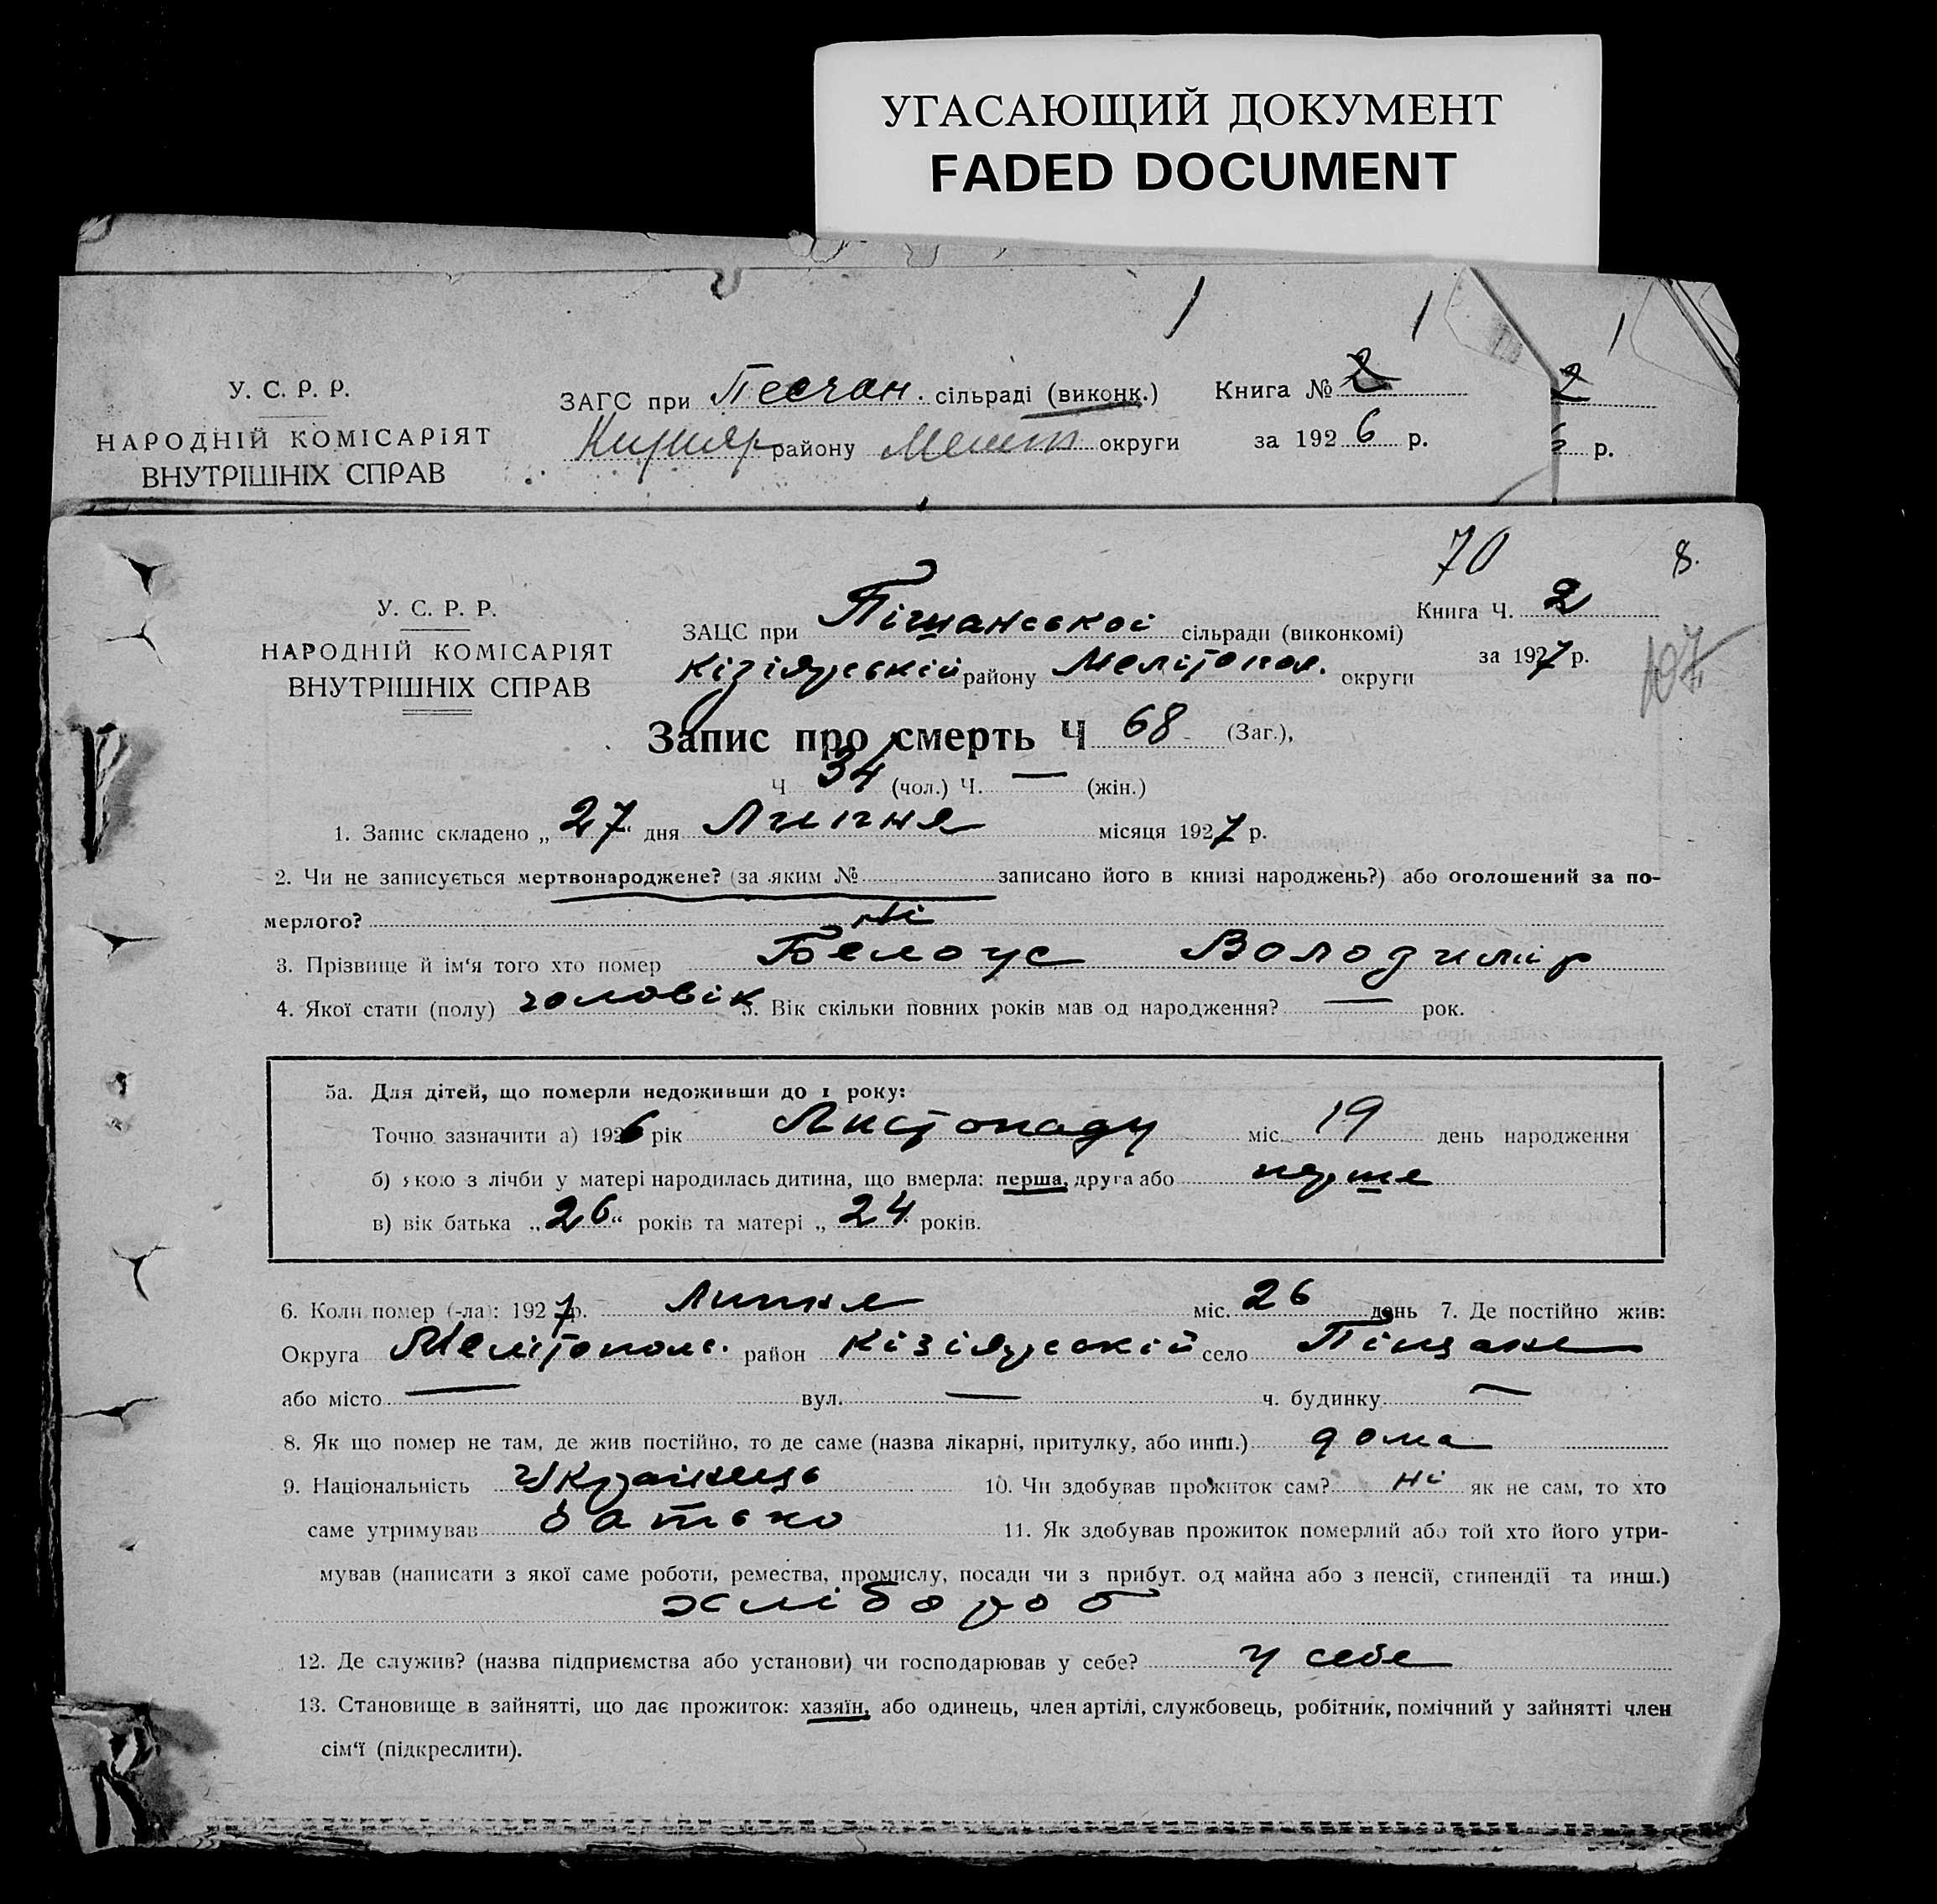 УГАСАЮЩИЙ ДОКУМЕНТ
FADED DOCUMENT
У. С. Р. Р.
НАРОДНІЙ КОМІСАРІЯТ
ВНУТРІШНІХ СПРАВ
ЗАГС при Песчан. сільраді (виконк.) Книга № 2
району Меліт округи за 1926 р.
2
р.
70 8.
У. С. Р. Р.
НАРОДНІЙ КОМІСАРІЯТ
ВНУТРІШНІХ СПРАВ
ЗАЦС при Піщанської сільради (виконкомі) Книга Ч. 2
Кізіярській району Мелітопол. округи за 1927 р.
107
Запис про смерть Ч 68 (Заг.),
Ч 34 (чол.) Ч. — (жін.)
1. Запис складено „27“ дня Липня місяця 1927 р.
2. Чи не записується мертвонароджене? (за яким № записано його в книзі народжень?) або оголошений за по-
мерлого? Ні
3. Прізвище й ім‘я того хто помер Белоус Володимір
4. Якої стати (полу) чоловік 5. Вік скільки повних років мав од народження? — рок.
5а. Для дітей, що померли недоживши до 1 року:
Точно зазначити а) 1926 рік Листопаду міс. 19 день народження
б) якою з лічби у матері народилась дитина, що вмерла: перша, друга або перше
в) вік батька „26“ років та матері „24“ років.
6. Коли помер (-ла): 1927 р. Липня міс. 26 день 7. Де постійно жив:
Округа Мелітопольс. район Кізіярській село Піщане
або місто — вул. — ч. будинку —
8. Як що помер не там, де жив постійно, то де саме (назва лікарні, притулку, або инш.) дома
9. Національність Українець 10. Чи здобував прожиток сам? ні як не сам, то хто
саме утримував батько 11. Як здобував прожиток померлий або той хто його утри-
мував (написати з якої саме роботи, ремества, промислу, посади чи з прибут. од майна або з пенсії, стипендії та инш.)
хлібороб
12. Де служив? (назва підприємства або установи) чи господарював у себе? у себе
13. Становище в зайнятті, що дає прожиток: хазяїн, або одинець, член артілі, службовець, робітник, помічний у зайнятті член
сім‘ї (підкреслити).